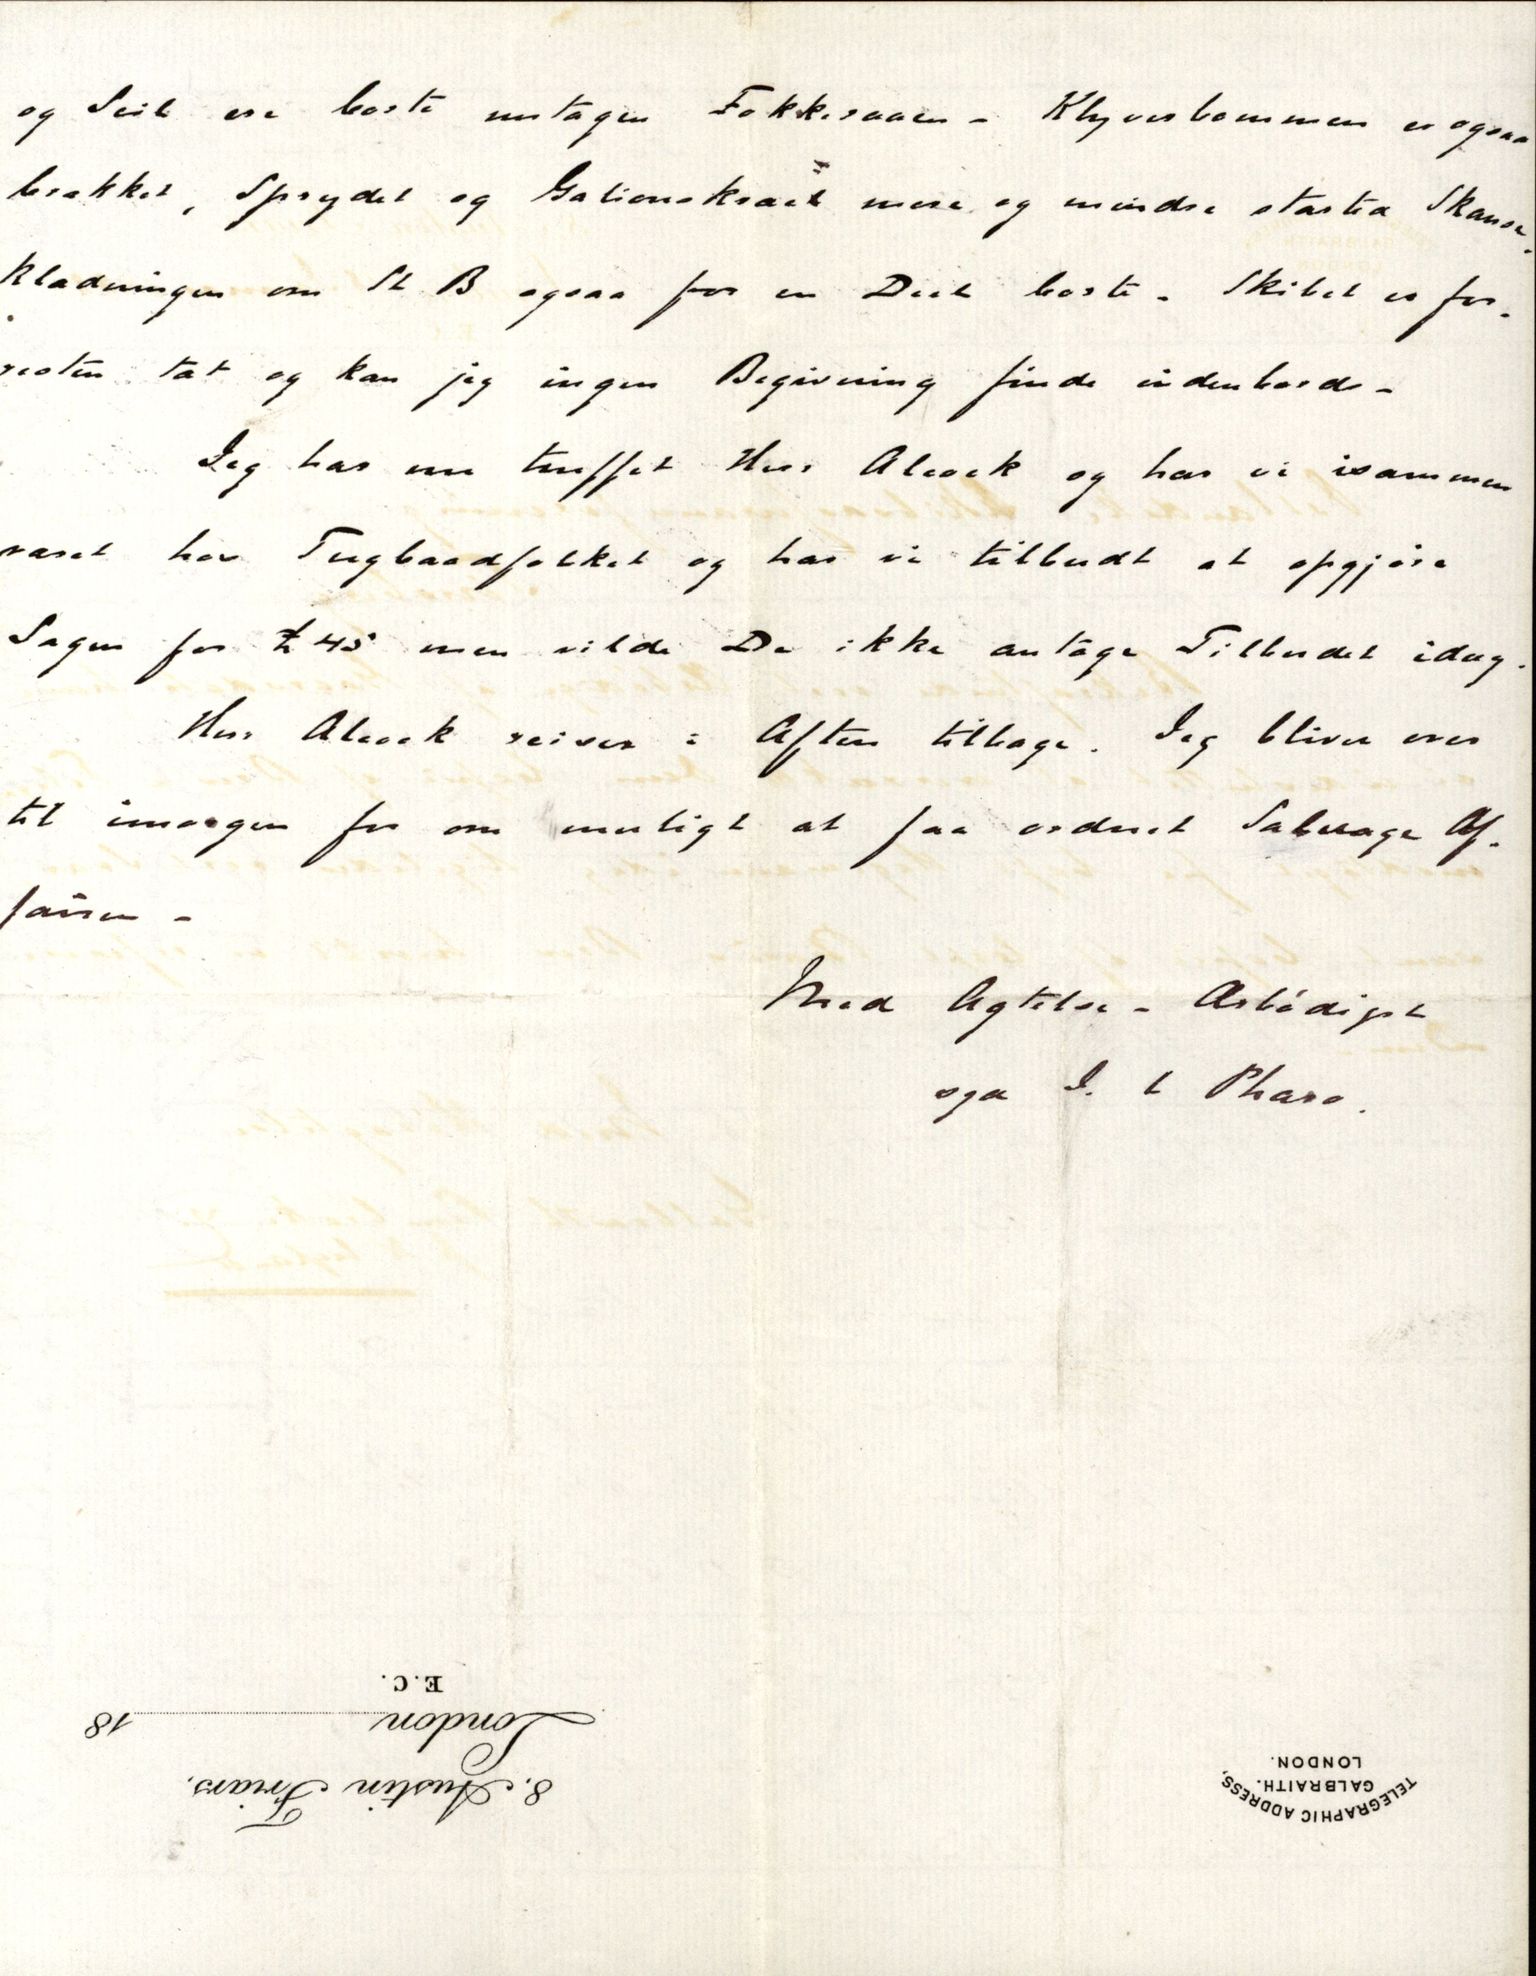 og Seil ere borte untagen Fokkeraaen - Klyverbommen er ogsaa
brækket, Sprydet og Galionskræet mere og mindre stærtia Skanse-
klædningen om St B ogsaa for en Deel borte - Skibet er for-
resten tæt og kan jeg ingen Begivning finde indenbords -
Jeg har nu truffet Herr Alcock og har vi isammen
været hos Tugbaadfolket og har vi tilbudt at opgjöre
Sagen for £45 men vilde De ikke antage Tilbudet idag.
Herr Alcock reiser i Aften tilbage. Jeg bliver over
til imorgen for om muligt at faa ordnet Salvage Af-
fairen -
Med Agtelse - Ærbödigst
sgd J. L Pharo.
8. Austin Friars,
London 18
E.C.
TELEGRAPHIC ADDRESS,
GALBRAITH.
LONDON.